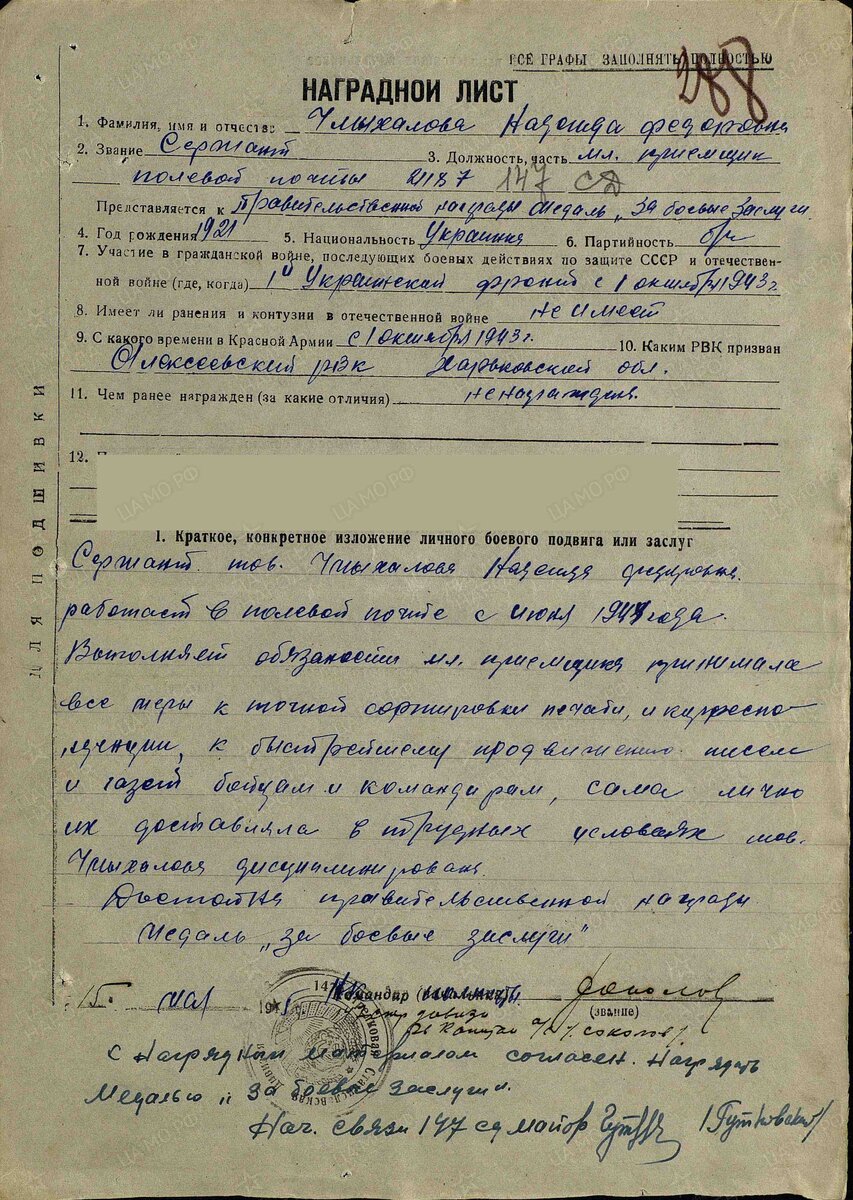 ВСЕ ГРАФЫ ЗАПОЛНЯТЬ ПОЛНОСТЬЮ
288
НАГРАДНОЙ ЛИСТ
1. Фамилия, имя и отчество Чмыхалова Надежда Федоровна
2. Звание Сержант 3. Должность, часть мл. приемщик
полевой почты 2187 147 СД
Представляется к Правительственной награды медаль „За боевые заслуги
4. Год рождения 1921 5. Национальность Украинка 6. Партийность б/п
7. Участие в гражданской войне, последующих боевых действиях по защите СССР и отечествен-
ной войне (где, когда) 1й Украинский фронт с 1 октября 1943 г.
8. Имеет ли ранения и контузии в отечественной войне Не имеет
9. С какого времени в Красной Армии с 1 октября 1943 г. 10. Каким РВК призван
Алексеевский рвк Харьковской обл.
11. Чем ранее награжден (за какие отличия) не награждена
12.
1. Краткое, конкретное изложение личного боевого подвига или заслуг
Сержант тов. Чмыхалова Надежда Федоровна
работает в полевой почте с июня 1944 года.
Выполняет обязаности мл. приемщика принимала
все меры к точной сортировки печати, и карреспо-
нденции, к быстрейшему продвижению писем
и газет бойцам и командирам, сама лично
их доставляла в трудных условаях тов.
Чмыхалова дисциплинирована.
Достойна правительственной награды
Медаль „за боевые заслуги"
15 мая 194 Командир (начальник) Соколов
(звание)
капитан Соколов
С Наградным материалом согласен. Наградить
Медалью „За боевые заслуги".
Нач. связи 147 сд майор /Гутковский/
ДЛЯ ПОДШИВКИ
ЦАМО.РФ